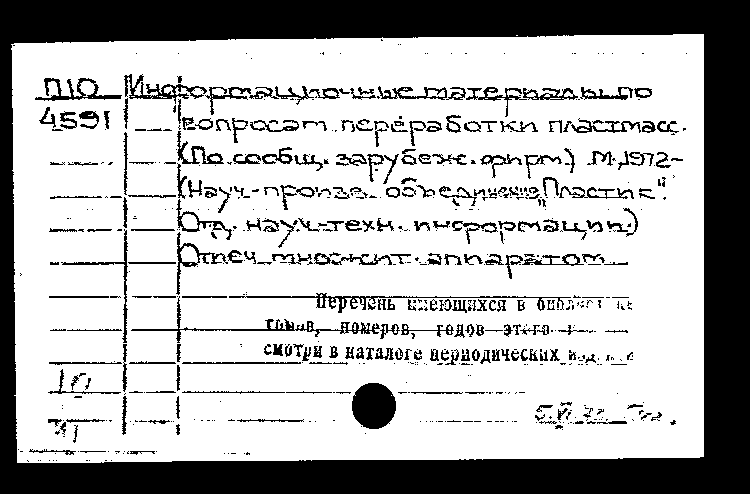 П10 Информационные материалы по
4591 вопросам переработки пластмасс.
(По сообщ. зарубеж. фирм) М., 1972-
(Науч.-произв. объединение „Пластик".
Отд. науч.-техн. информации.)
Отпеч. множит. аппаратом
Перечень имеющихся в
томов, номеров, годов этого
смотри в каталоге периодических